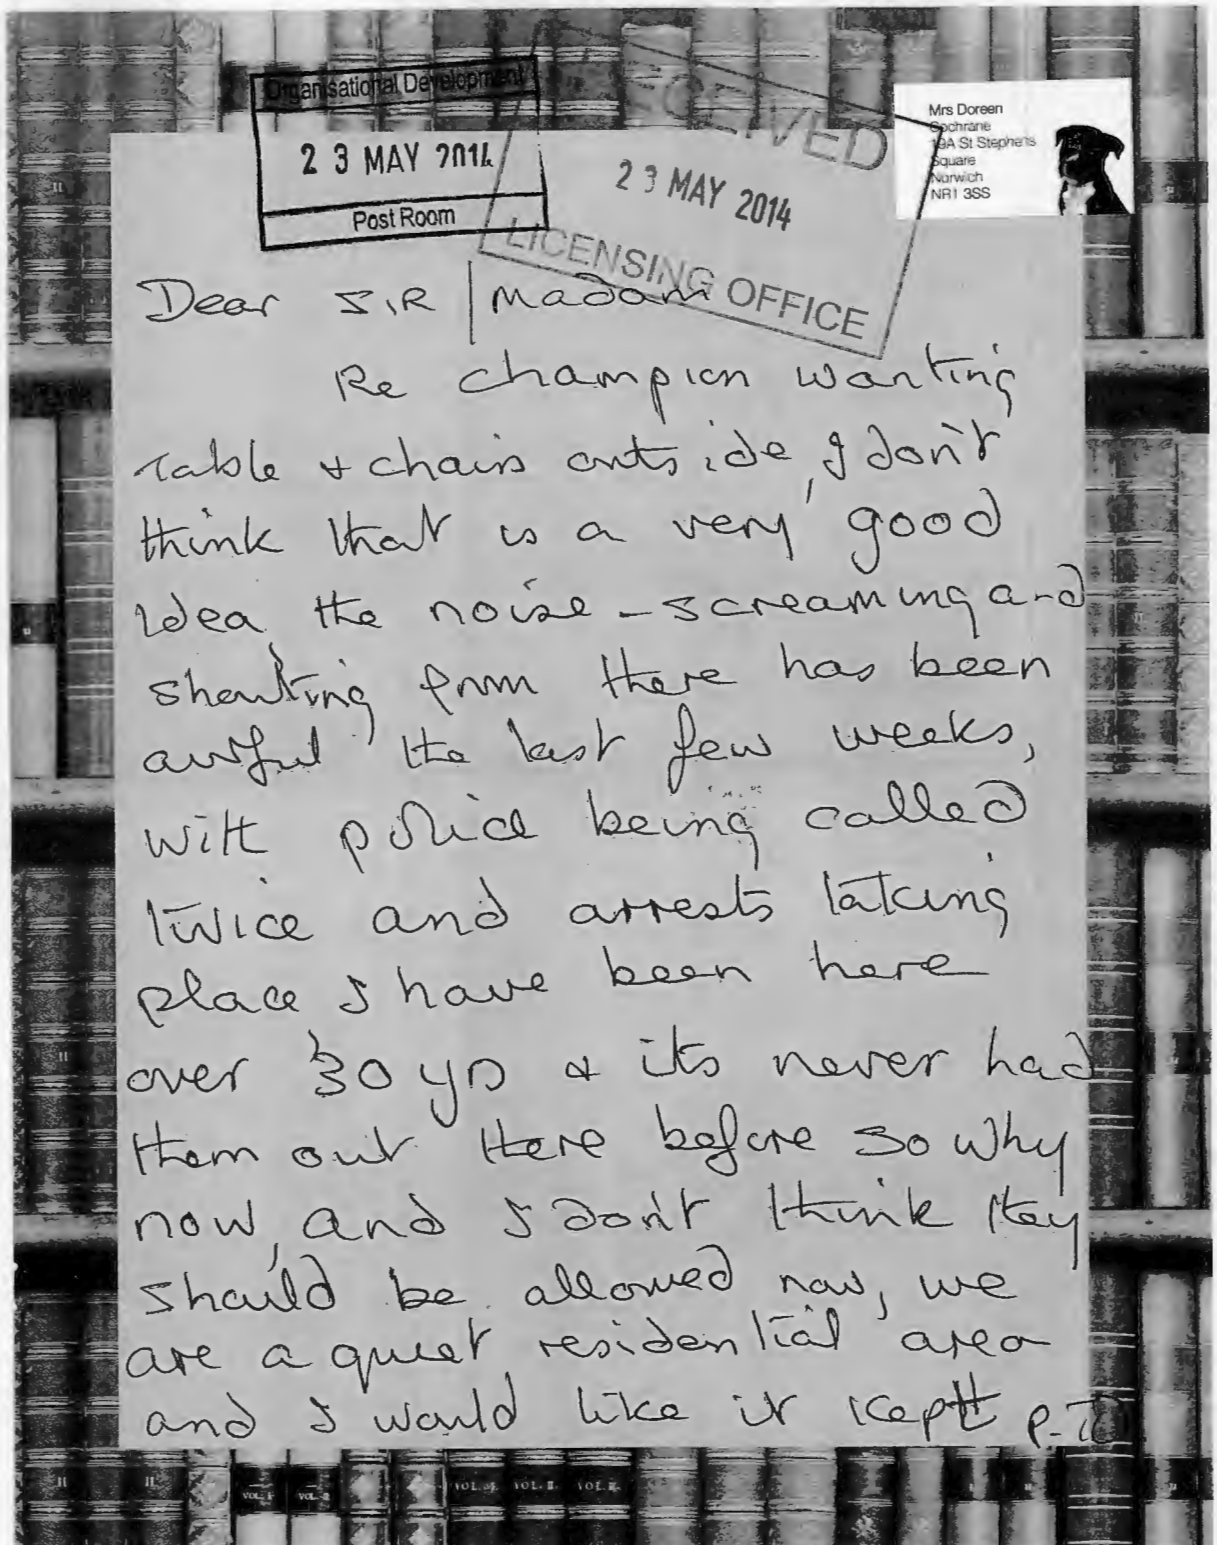 Organisational Development
23 MAY 2014
Post Room
RECEIVED
23 MAY 2014
LICENSING OFFICE
Mrs Doreen
Cochrane
19A St Stephens
Square
Norwich
NR1 3SS
Dear SIR / Madam
Re Champion wanting
table & chairs outside, I don't
think that is a very good
idea the noise - screaming and
shouting from there has been
awful the last few weeks,
with police being called
twice and arrests taking
place I have been here
over 30 yrs & its never had
them out there before so why
now, and I don't think they
should be allowed now, we
are a quiet residential area
and I would like it kept P.T.O
VOL. I.
VOL. II.
VOL. II.